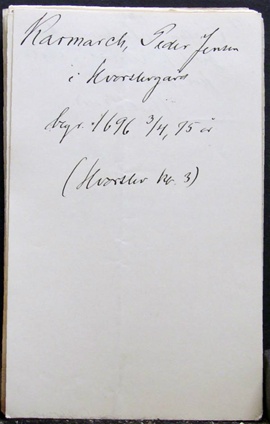 Karmarch, Peder Jensen
i Hvorslevgård
begr. 1696 3/4, 75 år
(Hvorslev Kb. 3)